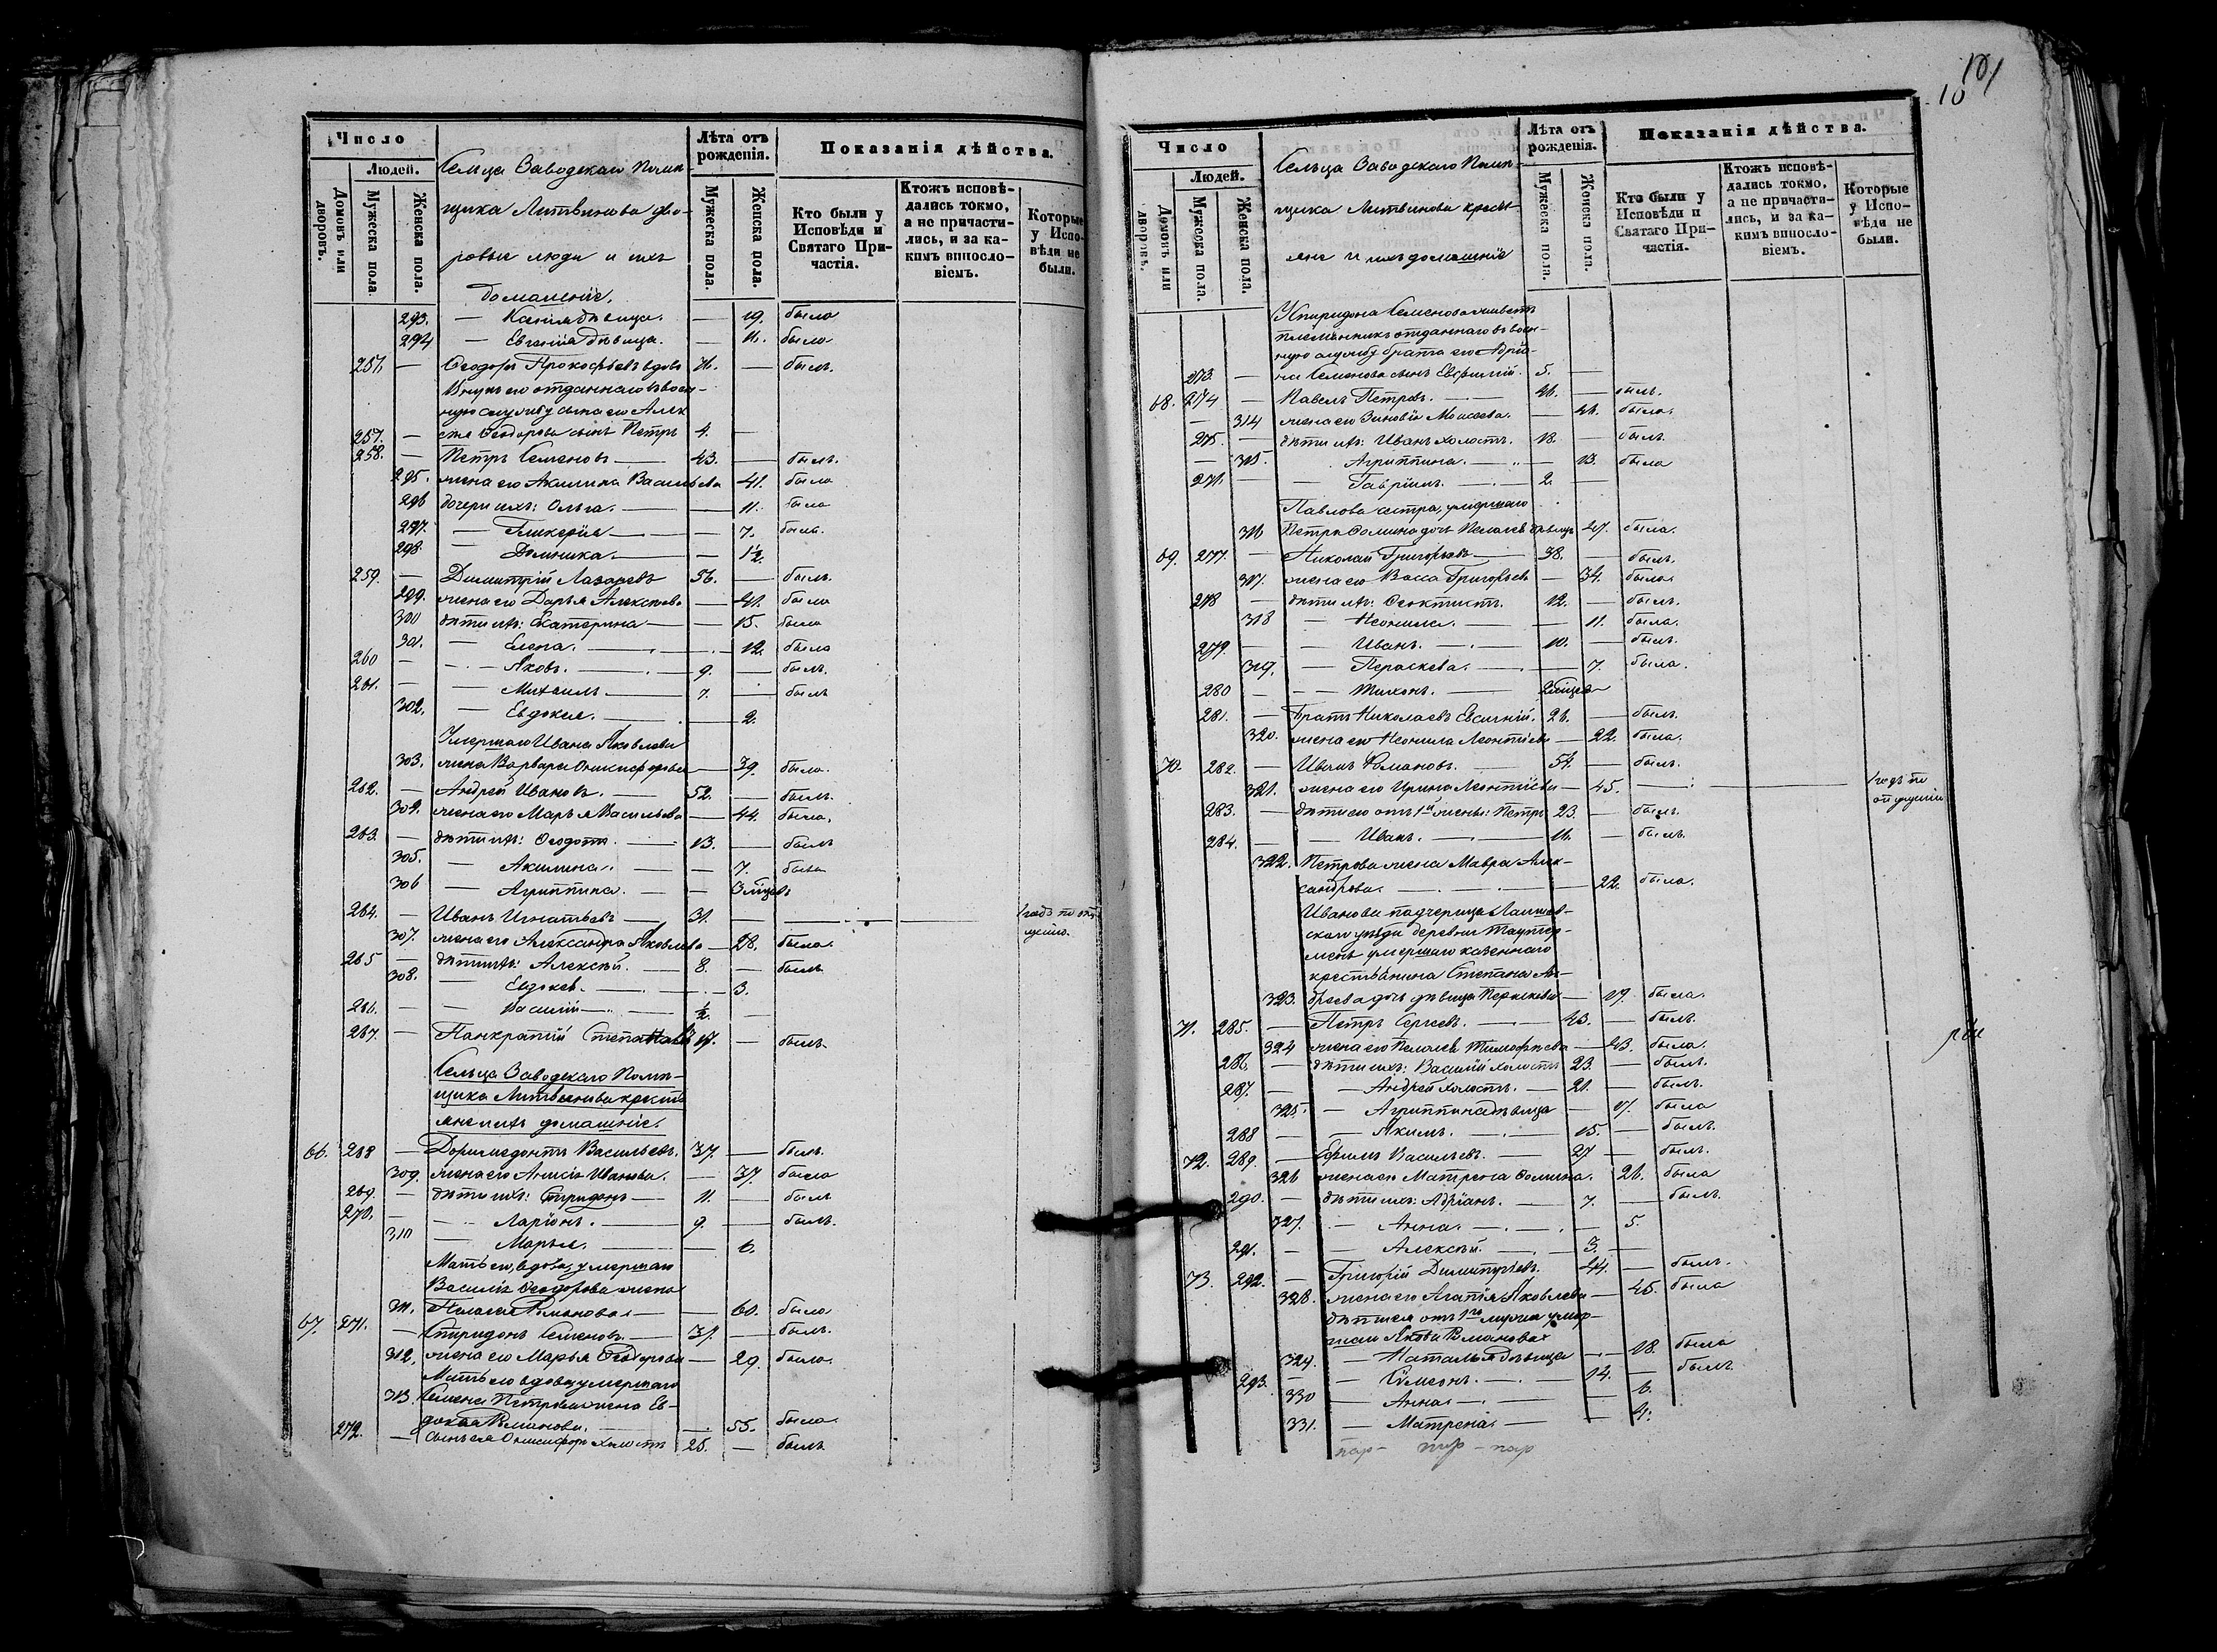 Число
Людей.
Домовъ или дворовъ.
Мужеска пола.
Женска пола.
Сельца Заводскаго Помѣ-
щика Литвинова дво-
ровые люди и ихъ
домашніе.
Лѣта отъ рожденія.
Мужеска пола.
Женска пола.
Показанія дѣйства.
Кто были у Исповѣди и Святаго При-частія.
Ктожъ исповѣ-дались токмо, а не причасти-лись, и за ка-кимъ винословіемъ.
Которые у Испо-вѣди не были.
293. — Ксенія дѣвица. — 19. была
294 — Евгенія дѣвица. — была
257. — Ѳеодоръ Прокофьевъ вдовъ — былъ.
Внукъ его отданнаго въ воен-
ную службу сына его Алек
сѣя Ѳеодорова сынъ Петръ 4. —
257. —
258. — Петръ Семеновъ — 43. — былъ.
295. жена его Акилина Васильева 41. была
296 дочери ихъ: Ольга. — 11. была
297. — Гликерія — 7. была.
298. — Домника. — 1½.
259. — Димитрій Лазаревъ 56. — былъ.
299. жена его Дарья Алексѣева — 41. была
300 дѣти ихъ: Екатерина — 15. была
301. — Елена. — 12. была
260 — Яковъ. — 9. — былъ.
261. — Михаилъ — 7. — былъ
302. — Евдокія. — 2.
Умершаго Ивана Яковлева
303. жена Варвара Онисифорова — 39. была.
262. — Андрей Ивановъ. — 52. — былъ.
304. жена его Марья Васильева — 44. была.
263. — дѣти ихъ: Ѳеодотъ. — 13. — былъ
305. — Акилина. — 7. была
306 — Агриппина. — 3 мѣсяц.
264. — Иванъ Игнатьевъ — 31. — 1 годъ по опу
щенію.
307. жена его Александра Яковлева — 28. была.
265 — дѣти ихъ: Алексѣй. — 8. — былъ
308. — Евдокія. — 3.
266. — Василій — ½. —
267. — Панкратій Степановъ 17. — былъ
Сельца Заводскаго Помѣ-
щика Литвинова кресть
яне и ихъ домашніе.
66. 268 — Доримедонтъ Васильевъ. 37. — былъ.
309. жена его Анисія Иванова. — 37. была
269. — дѣти ихъ: Спиридонъ — 11. — былъ
270. — Ларіонъ. — 9. — былъ.
310 — Марья. — 6.
Мать его, вдова, умершаго
Василія Ѳеодорова жена
311. Пелагея Романова — 60. была
67. 271. — Спиридонъ Семеновъ. — 31. — былъ.
312. жена его Марья Ѳеодорова — 29. была.
Мать его вдова умершаго
313. Семена Петрова жена Ев-
докія Романова. — 55. была.
272. — сынъ ея Онисифоръ холостъ 25. — былъ
101
10
Число
Людей.
Домовъ или дворовъ.
Мужеска пола.
Женска пола.
Сельца Заводскаго Помѣ-
щика Литвинова кресть
яне и ихъ домашніе
Лѣта отъ рожденія.
Мужеска пола.
Женска пола.
Показанія дѣйства.
Кто были у Исповѣди и Святаго При-частія.
Ктожъ исповѣ-дались токмо, а не причасти-лись, и за ка-кимъ винословіемъ.
Которые у Испо-вѣди не были.
У Спиридона Семенова живетъ
племянникъ отданнаго въ воен-
ную службу брата его Адріа-
273. — на Семенова сынъ Евфимій. 5. —
68. 274 — Павелъ Петровъ. — 46. — былъ.
314 жена его Зиновія Моисеева. — 46. была.
275. — дѣти ихъ: Иванъ холостъ. 18. — былъ.
315. Агриппина. — 13. была
276. — Гавріилъ. — 2. —
Павлова сестра, умершаго
316 Петра Ѳомина дочь Пелагея дѣвица 47. была.
69. 277. — Николай Григорьевъ — 38. — былъ.
317. жена его Васса Григорьева — 34. была.
278 — дѣти ихъ: Ѳеоктистъ. 12. — былъ.
318 — Неонила. — 11. была.
279. — Иванъ. — 10. — былъ.
319. — Параскева. — 7. была.
280 — Тихонъ. — 2 мѣсяца
281. — Братъ Николаевъ Евсигній. 26. — былъ.
320. жена его Неонила Леонтіева — 22. была.
70. 282. — Иванъ Романовъ. — 54. — былъ.
321. жена его Ирина Леонтіева — 45. — 1 годъ по
опущенію
283. — дѣти его отъ 1й жены: Петръ 23. — былъ.
284. — Иванъ. — 11. — былъ.
322. Петрова жена Мавра Алек-
сандрова. — 22. была.
Иванова падчерица Лаишев-
скаго уѣзда деревни
умершаго казеннаго
крестьянина Степана Ан-
323. дреева дочь дѣвица Параскева — 19. была.
71. 285. — Петръ Сергеевъ. — 43. — былъ.
324 жена его Пелагея Тимофеева — 43. была.
286. — дѣти ихъ: Василій холостъ 23. — былъ.
287. — Андрей холостъ. — 21. — былъ.
325. — Агриппина дѣвица — 17. была
288 — Акимъ. — 15. — былъ.
72. 289. — Ефимъ Васильевъ. — 27 — былъ.
326 жена его Матрена Ѳомина. 26. была
290. — дѣти ихъ: Адріанъ. — 7. — былъ.
327. — Анна. — 5.
291. — Алексѣй. — 3. —
73. 292. — Григорій Димитріевъ. 44. — былъ.
328. жена его Агапія Яковлева — 45. была
дѣти ея отъ 1го мужа умер-
шаго Якова Романова
329. — Наталья дѣвица — 18. была
293. — Сѷмеонъ. — 14. — былъ
330 — Анна. — 6.
331. — Матрена. — 4.
пар- пар - пар